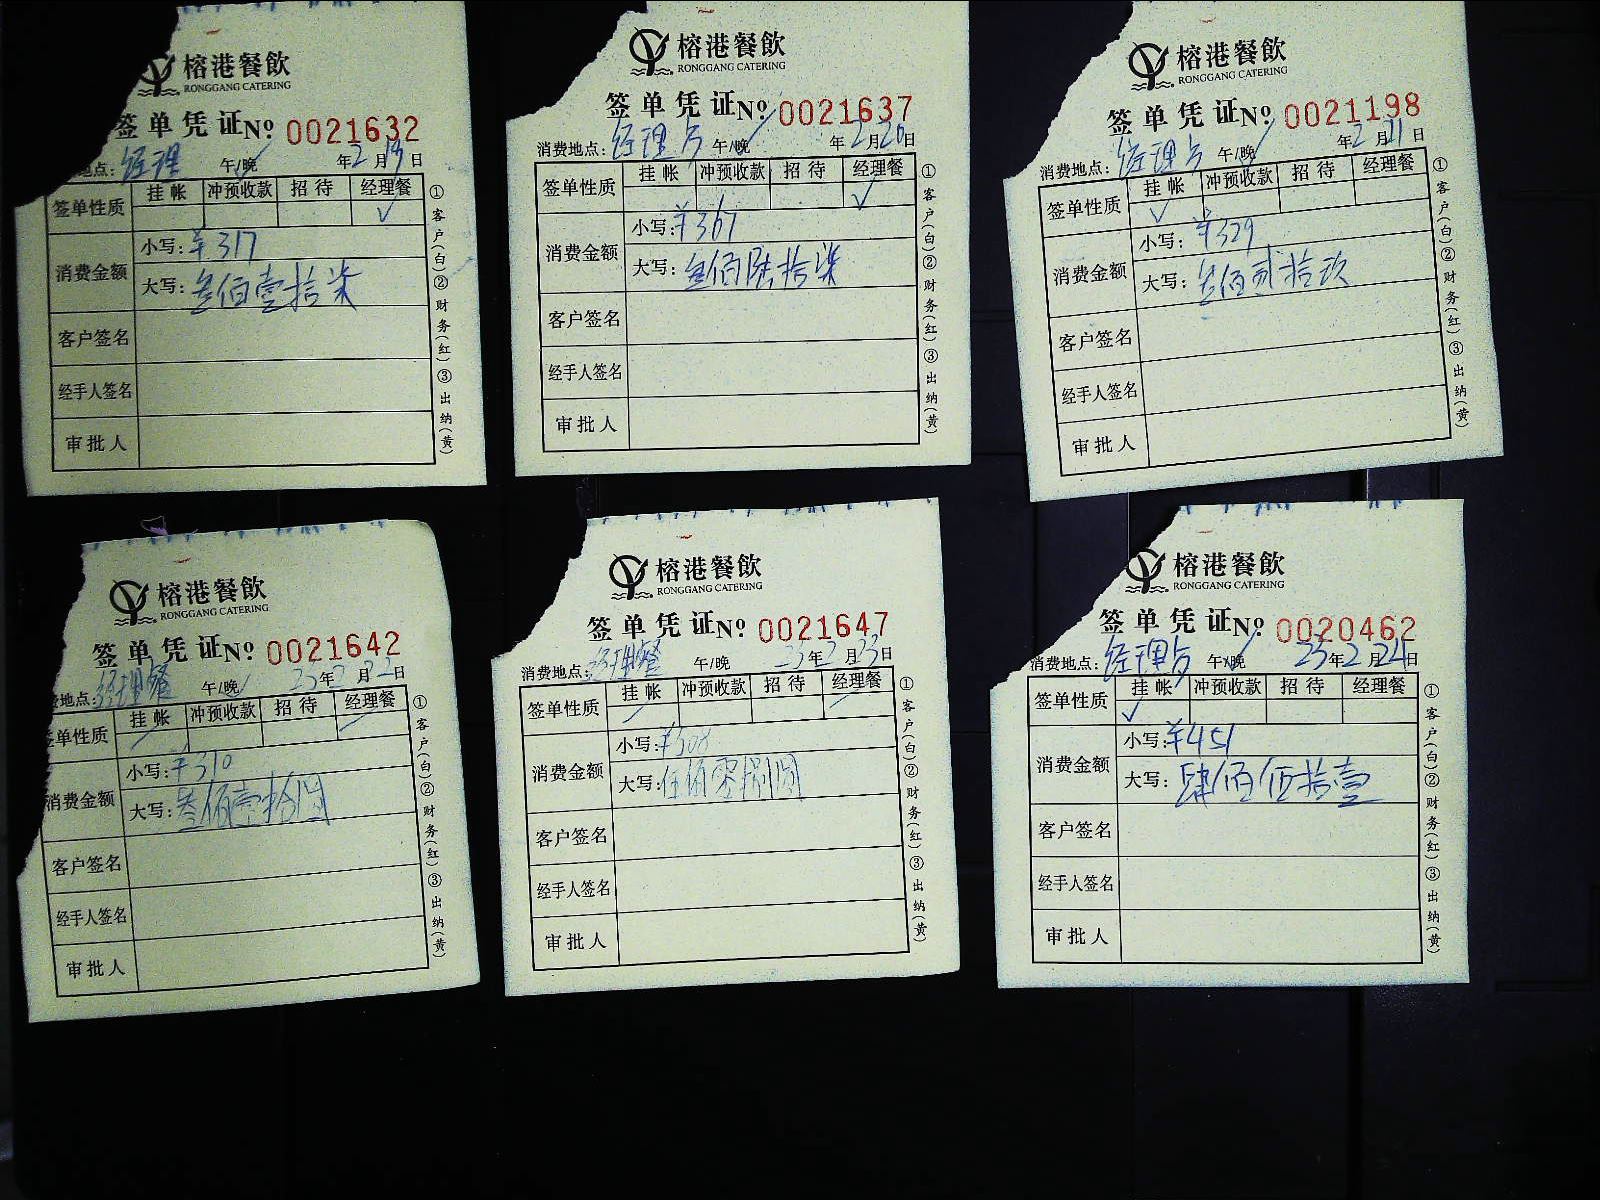 榕港餐飲
RONGGANG CATERING
签单凭证 No 0021632
地点: 经理 午/晚 年2月19日
签单性质 挂帐 冲预收款 招待 经理餐
✓
消费金额 小写: ¥317
大写: 叁佰壹拾柒
客户签名
经手人签名
审批人
①客户(白)②财务(红)③出纳(黄)
榕港餐飲
RONGGANG CATERING
签单凭证 No 0021637
消费地点: 经理房 午/晚 年2月20日
签单性质 挂帐 冲预收款 招待 经理餐
✓
消费金额 小写: ¥367
大写: 叁佰陆拾柒
客户签名
经手人签名
审批人
①客户(白)②财务(红)③出纳(黄)
榕港餐飲
RONGGANG CATERING
签单凭证 No 0021198
消费地点: 经理房 午/晚 年2月21日
签单性质 挂帐 冲预收款 招待 经理餐
✓
消费金额 小写: ¥329
大写: 叁佰贰拾玖
客户签名
经手人签名
审批人
①客户(白)②财务(红)③出纳(黄)
榕港餐飲
RONGGANG CATERING
签单凭证 No 0021642
费地点: 经理餐 午/晚 23年2月22日
签单性质 挂帐 冲预收款 招待 经理餐
消费金额 小写: ¥310
大写: 叁佰壹拾圆
客户签名
经手人签名
审批人
①客户(白)②财务(红)③出纳(黄)
榕港餐飲
RONGGANG CATERING
签单凭证 No 0021647
消费地点: 经理餐 午/晚 23年2月23日
签单性质 挂帐 冲预收款 招待 经理餐
消费金额 小写: ¥508
大写: 伍佰零捌圆
客户签名
经手人签名
审批人
①客户(白)②财务(红)③出纳(黄)
榕港餐飲
RONGGANG CATERING
签单凭证 No 0020462
消费地点: 经理房 午/晚 23年2月24日
签单性质 挂帐 冲预收款 招待 经理餐
✓
消费金额 小写: ¥451
大写: 肆佰伍拾壹
客户签名
经手人签名
审批人
①客户(白)②财务(红)③出纳(黄)